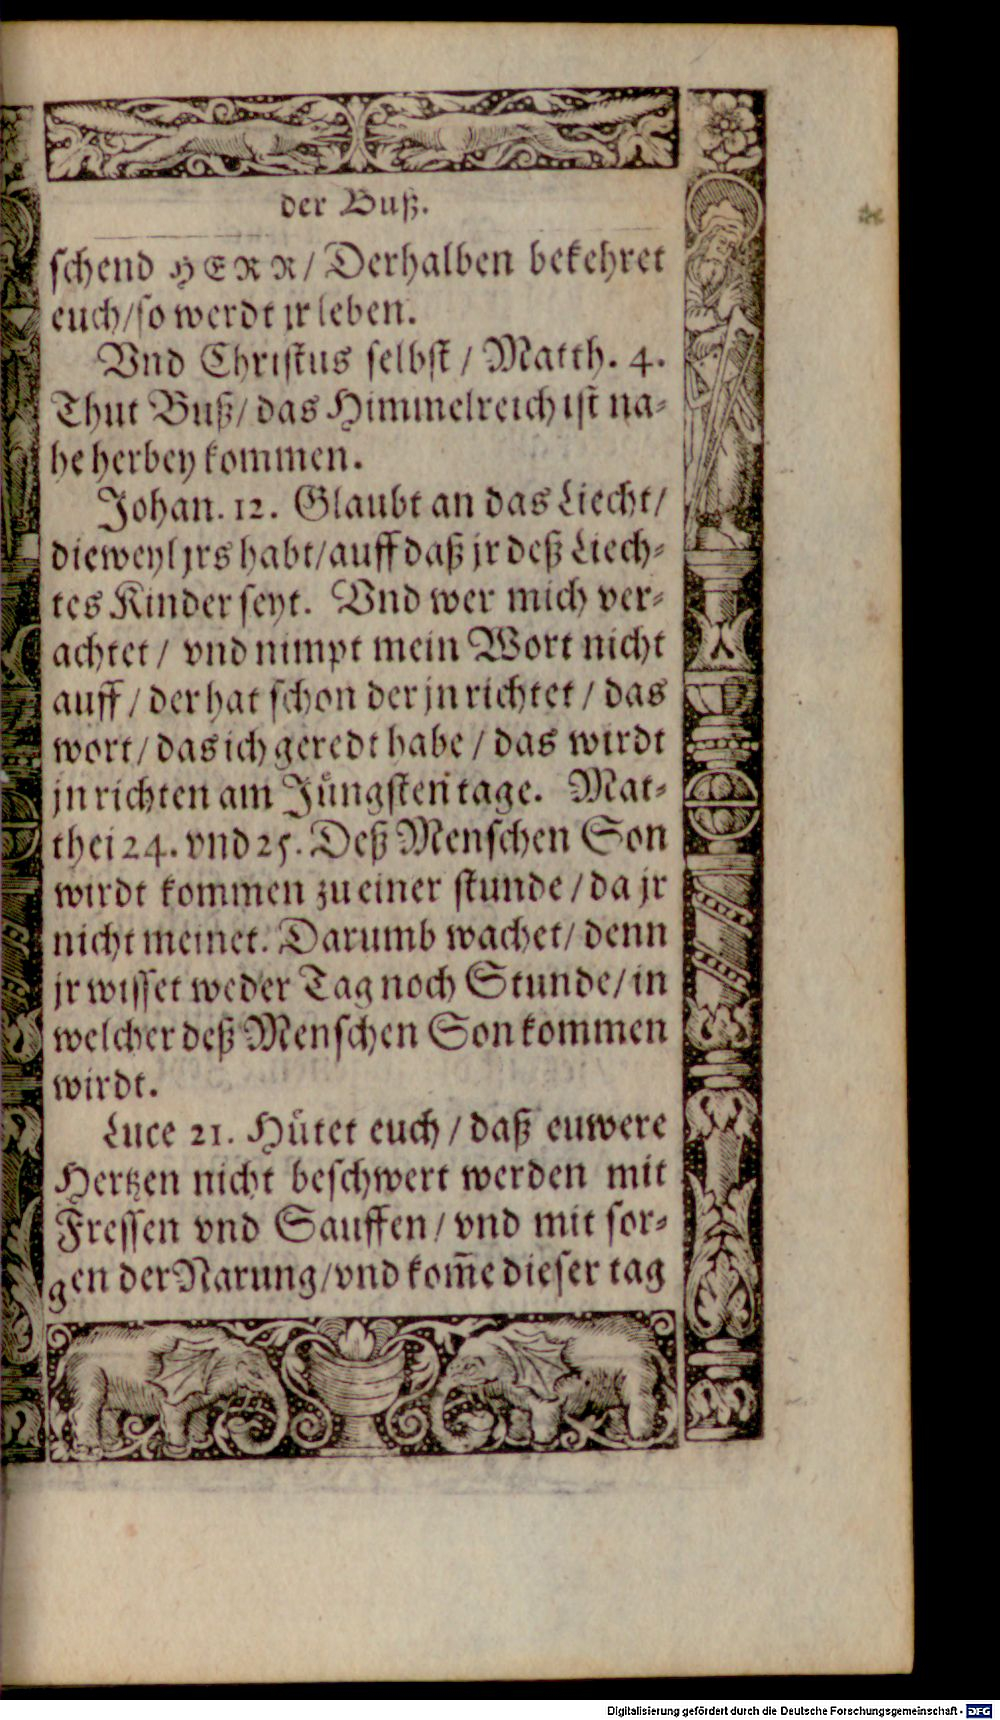 der Buß.
schend HERR/ Derhalben bekehret
euch/so werdt jr leben.
Vnd Christus selbst / Matth. 4.
Thut Buß/ das Himmelreich ist na⸗
he herbey kommen.
Johan. 12. Glaubt an das Liecht/
dieweyl jrs habt/auff daß jr deß Liech⸗
tes Kinder seyt. Vnd wer mich ver⸗
achtet / vnd nimpt mein Wort nicht
auff / der hat schon der jn richtet / das
wort/ das ich geredt habe / das wirdt
jn richten am Jüngsten tage. Mat⸗
thei 24. vnd 25. Deß Menschen Son
wirdt kommen zu einer stunde / da jr
nicht meinet. Darumb wachet/ denn
jr wisset weder Tag noch Stunde/ in
welcher deß Menschen Son kommen
wirdt.
Luce 21. Hütet euch / daß euwere
Hertzen nicht beschwert werden mit
Fressen vnd Sauffen/ vnd mit sor⸗
gen der Narung/vnd kom̃e dieser tag
Digitalisierung gefördert durch die Deutsche Forschungsgemeinschaft - DFG